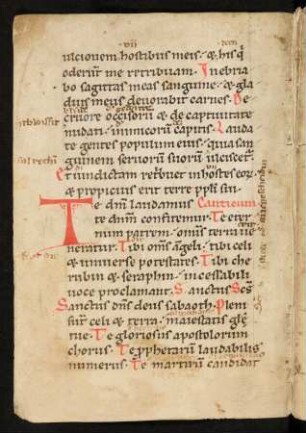 ultionem hostibus meis. & his q̄
oderūt me retribuam. Inebria
bo sagittas meas sanguine. & gla
dius meus devorabit carnes. De
cruore occisorū & de captivitate
nudati. inimicorū capitis. Lauda
te gentes populum eius. quia san
guinem servorū suorū ulciscet̄.
Et vindictam retbuet in hostes eorū.
& propicius erit terre ppli sui
Te dm̄ laudamus Canticum
te dnm̄ confitemur. Te eter
num patrem. omnis terra ve
neratur. Tibi oms̄ angeli. tibi celi
& universe potestates. Tibi che
rubin & seraphin. incessabili
voce proclamant. Sanctus Scs̄
Sanctus dn̄s deus sabaoth. Pleni
sunt celi & terra. maiestatis glē
tue. Te gloriosus apostolorum
chorus. Te prophetarū laudabilis
numerus. Te martirū candidat